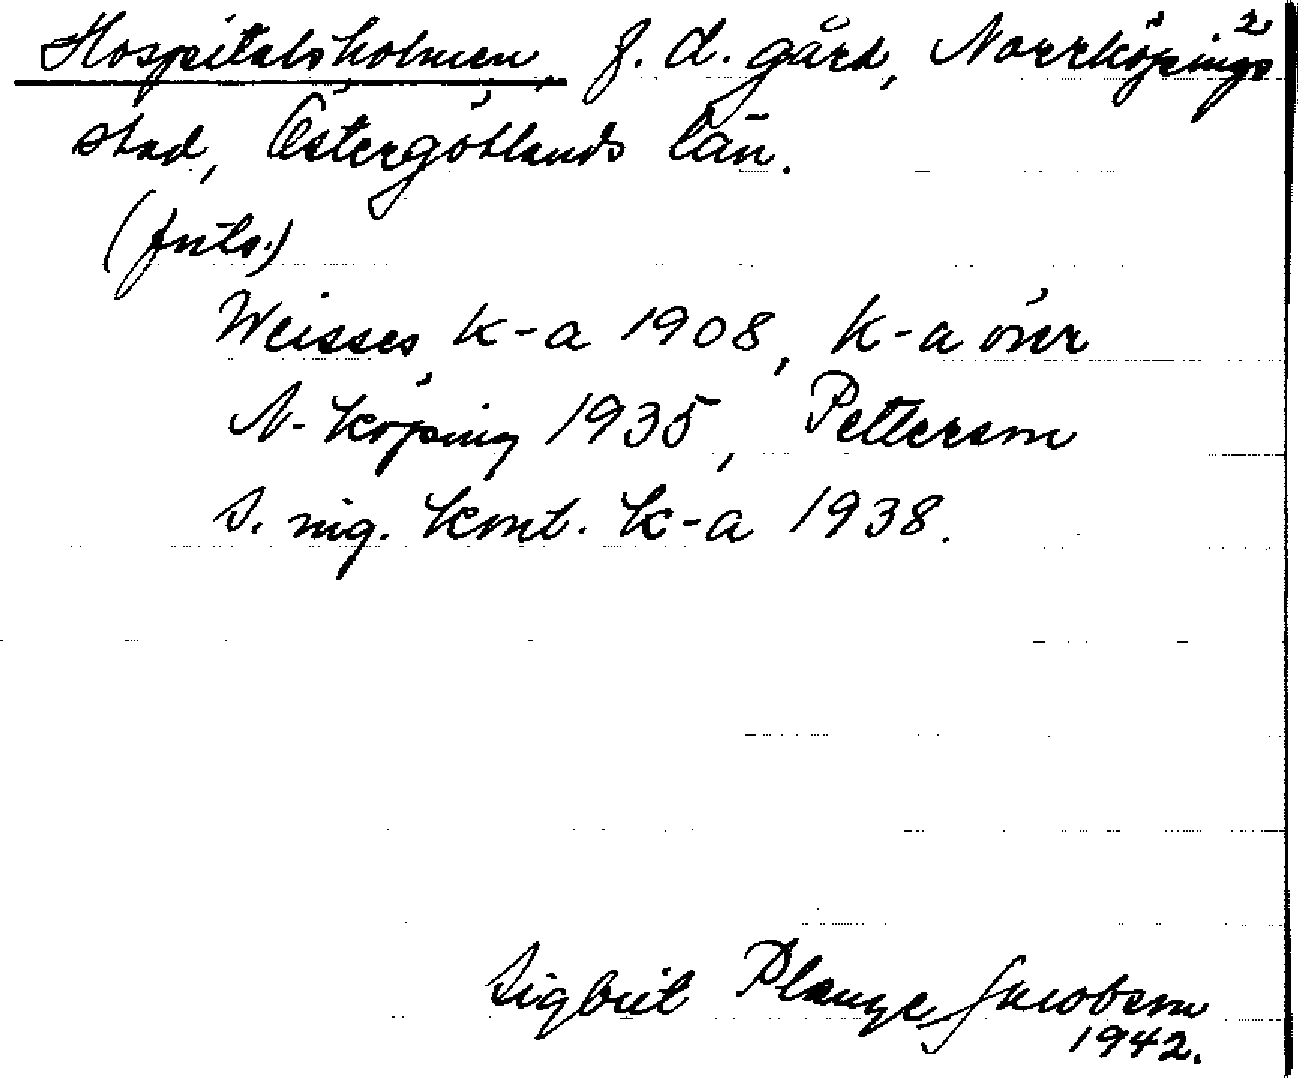 Hospitalsholmen, f. d. gård, Norrköpings 2
stad, Östergötlands län.
(forts.)
Weisses k-a 1908, k-a över
N-köping 1935, Petterson
s. nig. kont. k-a 1938.
Sigbrit Plange Jacobson
1942.